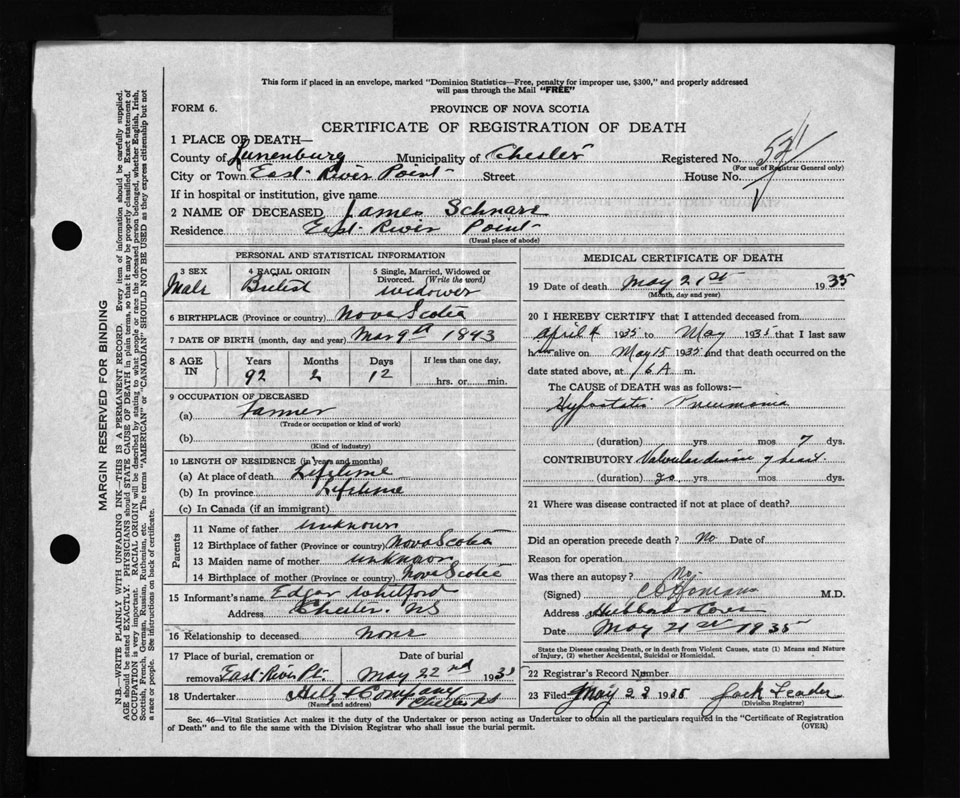 This form if placed in an envelope, marked "Dominion Statistics—Free, penalty for improper use, $300," and properly addressed
will pass through the Mail "FREE"
FORM 6.
PROVINCE OF NOVA SCOTIA
CERTIFICATE OF REGISTRATION OF DEATH
1 PLACE OF DEATH—
County of Lunenburg Municipality of Chester Registered No.
(For use of Registrar General only)
City or Town East River Point Street House No.
If in hospital or institution, give name
2 NAME OF DECEASED James Schnare
Residence East River Point
(Usual place of abode)
PERSONAL AND STATISTICAL INFORMATION
3 SEX 4 RACIAL ORIGIN 5 Single, Married, Widowed or Divorced. (Write the word)
Male British widower
6 BIRTHPLACE (Province or country) Nova Scotia
7 DATE OF BIRTH (month, day and year) Mar 9th 1843
8 AGE IN Years Months Days If less than one day,
92 2 12 hrs. or min.
9 OCCUPATION OF DECEASED
(a) Farmer
(Trade or occupation or kind of work)
(b)
(Kind of industry)
10 LENGTH OF RESIDENCE (in years and months)
(a) At place of death Lifetime
(b) In province Lifetime
(c) In Canada (if an immigrant)
Parents
11 Name of father unknown
12 Birthplace of father (Province or country) Nova Scotia
13 Maiden name of mother unknown
14 Birthplace of mother (Province or country) Nova Scotia
15 Informant's name Edgar Whitford
Address Chester NS
16 Relationship to deceased none
17 Place of burial, cremation or Date of burial
removal East River Pt. May 22nd 1935
18 Undertaker & Company
(Name and address) Chester NS
MEDICAL CERTIFICATE OF DEATH
19 Date of death May 21st 1935
(Month, day and year)
20 I HEREBY CERTIFY that I attended deceased from
April 4 1935 to May 1935 that I last saw
him alive on May 15 1935 and that death occurred on the
date stated above, at A m.
The CAUSE of DEATH was as follows:—
Hypostatic Pneumonia
(duration) yrs mos 7 dys.
CONTRIBUTORY Valvular disease of heart
(duration) yrs. mos dys.
21 Where was disease contracted if not at place of death?
Did an operation precede death? No Date of
Reason for operation
Was there an autopsy? No
(Signed) M.D.
Address Hubbards Cove
Date May 21st 1935
State the Disease causing Death, or in death from Violent Causes, state (1) Means and Nature
of Injury, (2) whether Accidental, Suicidal or Homicidal.
22 Registrar's Record Number
23 Filed May 23 1935 Jack Leader
(Division Registrar)
Sec. 46—Vital Statistics Act makes it the duty of the Undertaker or person acting as Undertaker to obtain all the particulars required in the "Certificate of Registration
of Death" and to file the same with the Division Registrar who shall issue the burial permit. (OVER)
MARGIN RESERVED FOR BINDING
N.B.—WRITE PLAINLY WITH UNFADING INK—THIS IS A PERMANENT RECORD. Every item of information should be carefully supplied.
AGE should be stated EXACTLY. PHYSICIANS should STATE CAUSE OF DEATH in plain terms, so that it may be properly classified. Exact statement of
OCCUPATION is very important. RACIAL ORIGIN will be described by stating to what people or race the deceased person belonged, whether English, Irish,
Scottish, French, German, Russian, Ruthenian, etc. The terms "AMERICAN" or "CANADIAN" SHOULD NOT BE USED as they express citizenship but not
a race or people. See instructions on back of certificate.